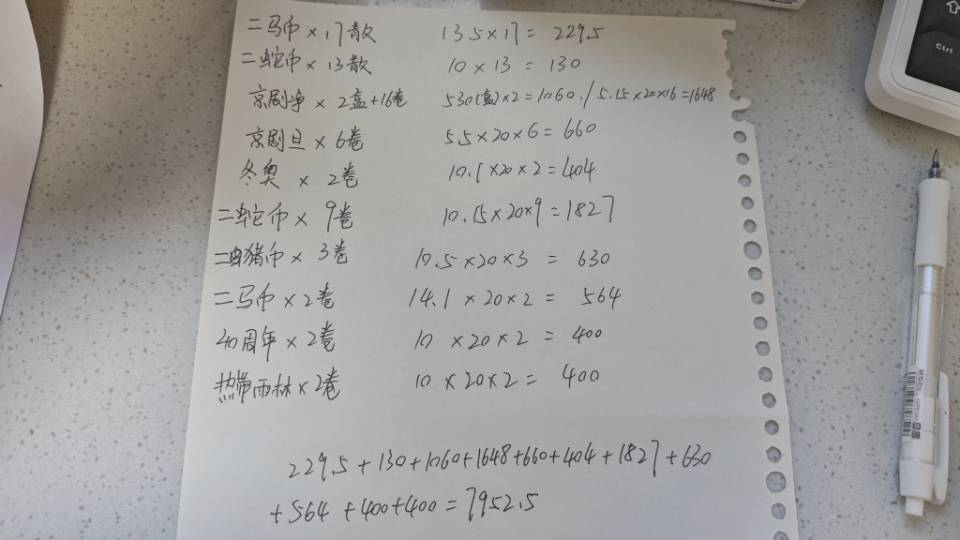 二马币×17散 13.5×17=229.5
二蛇币×13散 10×13=130
京剧净×2盒+16卷 530(盒)×2=1060./5.15×20×16=1648
京剧旦×6卷 5.5×20×6=660
冬奥×2卷 10.1×20×2=404
二蛇币×9卷 10.15×20×9=1827
二猪币×3卷 10.5×20×3=630
二马币×2卷 14.1×20×2=564
40周年×2卷 10×20×2=400
热带雨林×2卷 10×20×2=400
229.5+130+1060+1648+660+404+1827+630
+564+400+400=7952.5
Ctrl